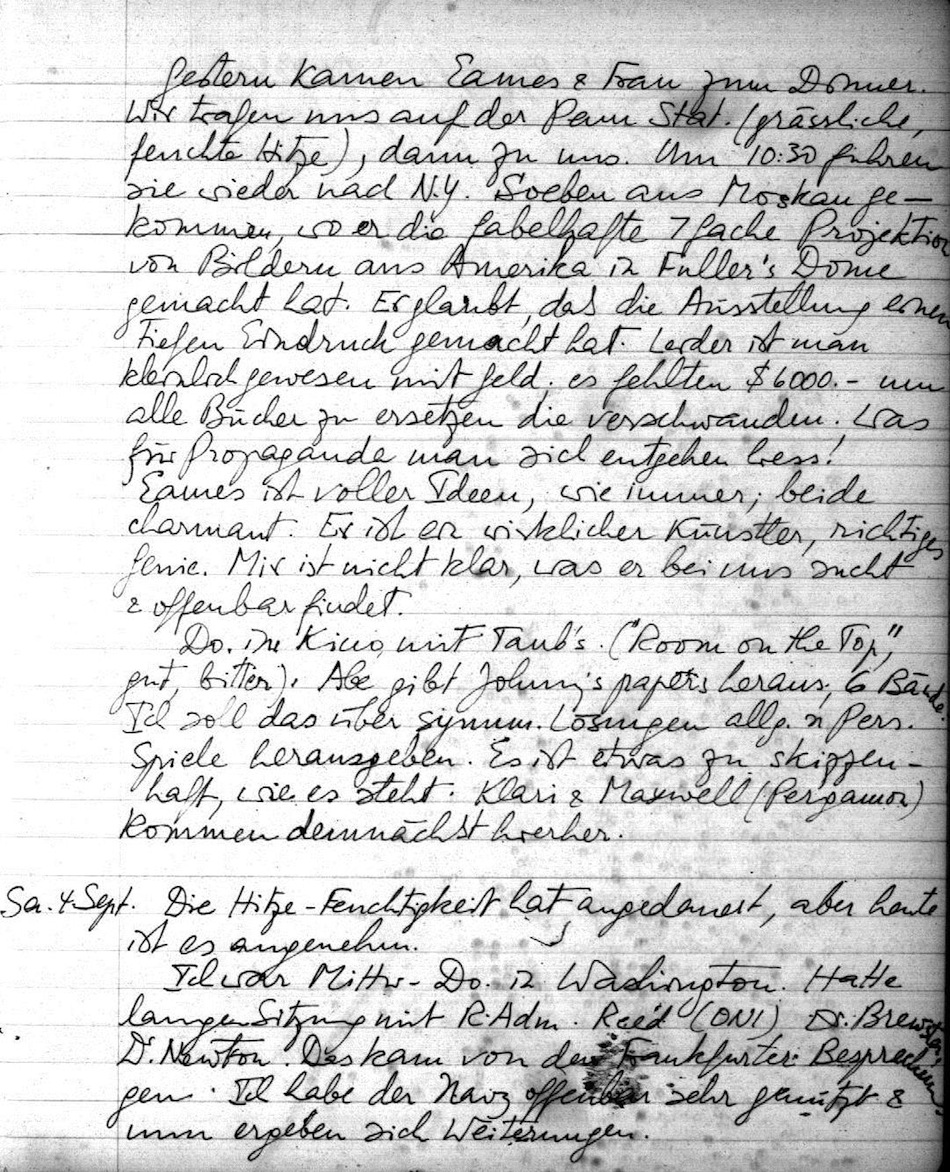 Gestern kamen Eames & Frau zum Dinner.
Wir trafen uns auf der Penn Stat. (grässliche,
feuchte Hitze), dann zu uns. Um 10:30 fuhren
sie wieder nach N.Y. Soeben aus Moskau ge-
kommen, wo er die fabelhafte 7fache Projektion
von Bildern aus Amerika in Fuller's Dome
gemacht hat. Er glaubt, dass die Ausstellung einen
tiefen Eindruck gemacht hat. Leider ist man
kleinlich gewesen mit Geld. es fehlten $6000.- um
alle Bücher zu ersetzen die verschwanden. Was
für Propaganda man sich entgehen liess!
Eames ist voller Ideen, wie immer; beide
charmant. Er ist ein wirklicher Künstler, richtiges
Genie. Mir ist nicht klar, was er bei uns sucht
& offenbar findet.
Do. im Kino mit Taub's. ("Room on the Top",
gut, bitter). Abe gibt Johnny's papers heraus, 6 Bände
Ich soll das über symm. Lösungen allg. n Pers.
Spiele herausgeben. Es ist etwas zu skizzen-
haft, wie es steht. Klari & Maxwell (Pergamon)
kommen demnächst hierher.
Sa. 4. Sept. Die Hitze-Feuchtigkeit hat angedauert, aber heute
ist es angenehm.
Ich war Mittw - Do. in Washington. Hatte
lange Sitzung mit R. Adm. Reed (ONI) Dr. Brewster
Dr. Newton. Das kam von den Frankfurter Besprechun
gen. Ich habe der Navy offenbar sehr genützt &
nun ergeben sich Weiterungen.